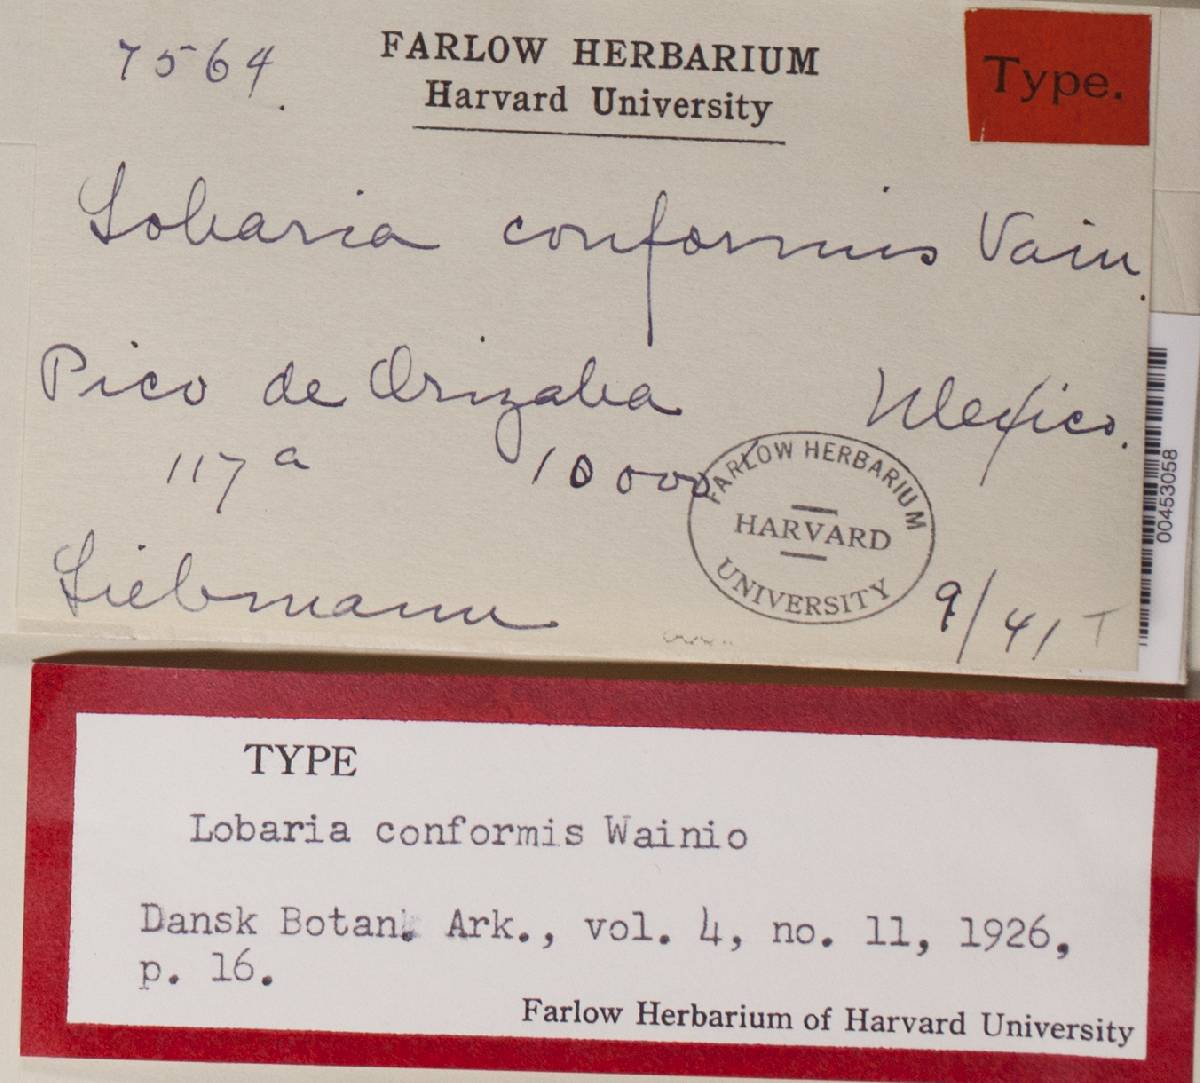 7564.
FARLOW HERBARIUM
Harvard University
Type.
Lobaria conformis Vain.
Pico de Orizaba Mexico.
117a 10000
FARLOW HERBARIUM
HARVARD
UNIVERSITY
Liebmann
9/41 T
00453058
TYPE
Lobaria conformis Wainio
Dansk Botan. Ark., vol. 4, no. 11, 1926,
p. 16.
Farlow Herbarium of Harvard University